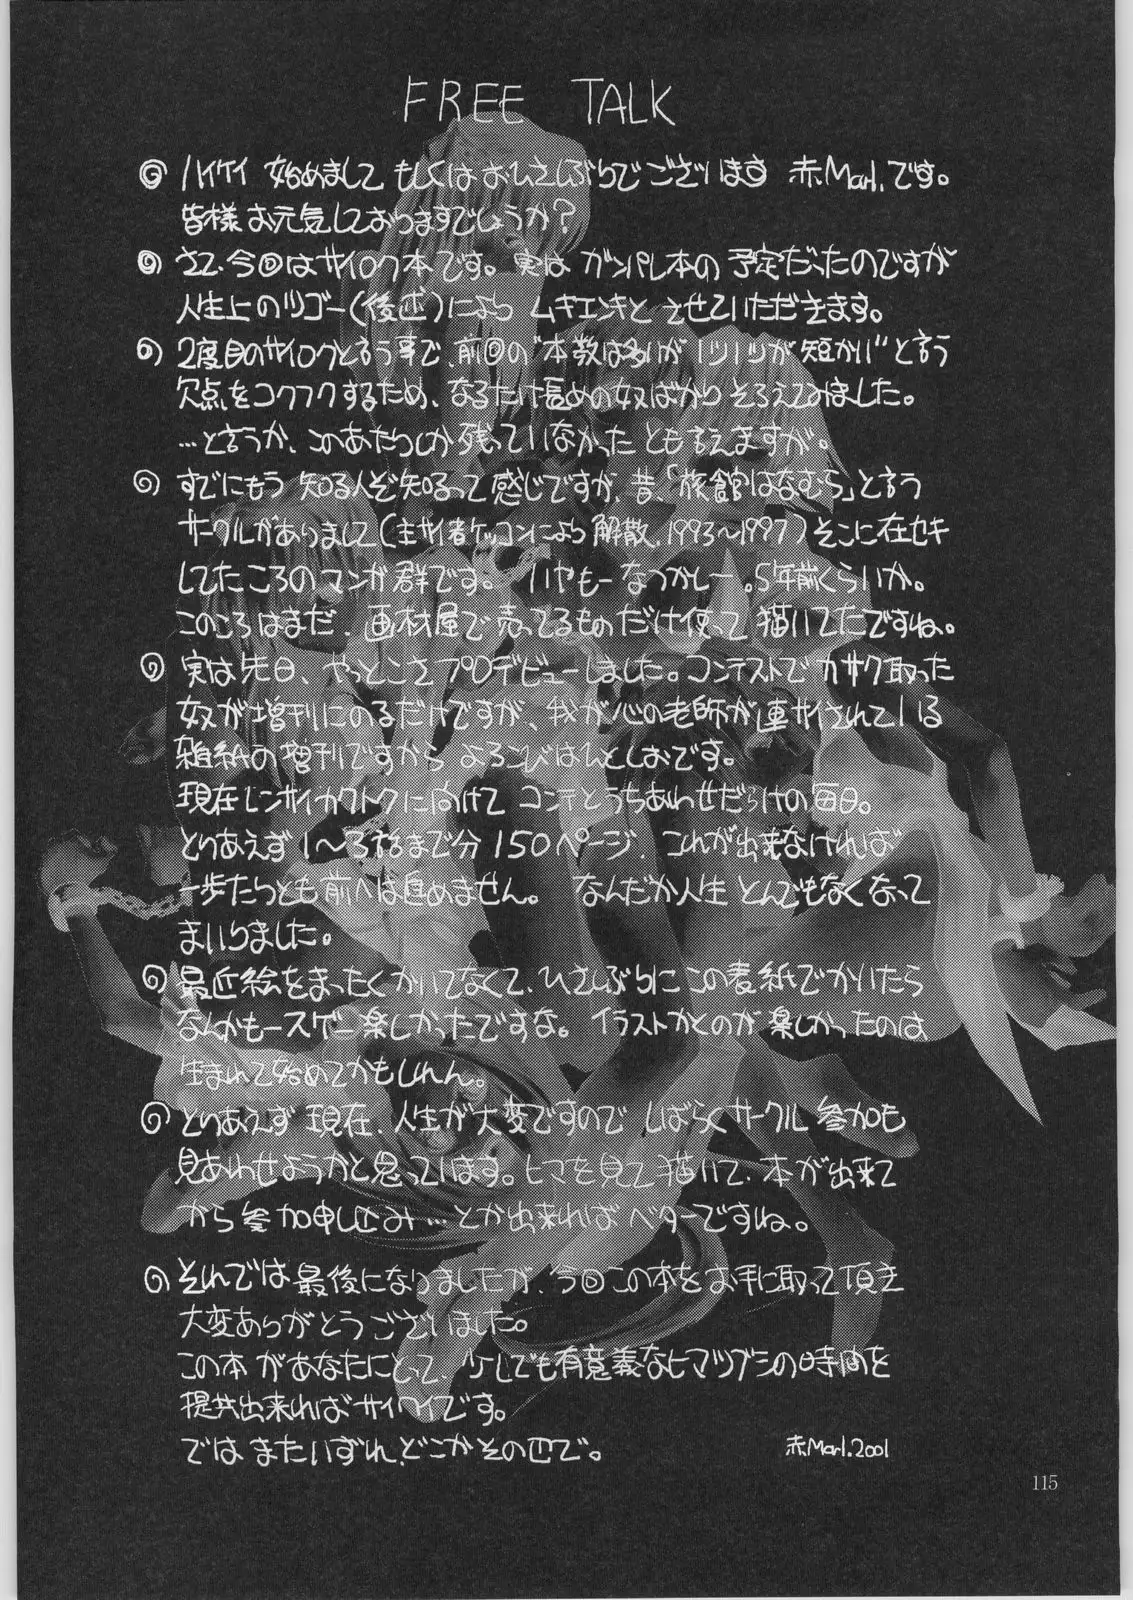 FREE TALK
ハイケイ 始めまして もしくはおひさしぶりでございます 赤Marl.です。
皆様お元気しておりますでしょうか?
さて、今回はサイロク本です。実は ガンパレ本の 予定だったのですが
人生上のツゴー(後述)により ムキエンキと させていただきます。
2度目のサイロクと言う事で、前回の"本数は多いが1ツ1ツが短かい"と言う
欠点をコクフクするため、なるたけ長めの奴ばかり そろえてみました。
…と言うか、このあたりしか残っていなかったとも言えますが。
すでにもう 知る人ぞ知るって感じですが、昔、「旅館はなむら」と言う
サークルがありまして(主サイ者ケッコンにより解散、1993〜1997)そこに在セキ
してたころのマンガ群です。 いやもー なつかしー。5年前くらいか。
このころはまだ、画材屋で売ってるものだけ使って描いてたですね。
実は先日、やっとこさプロデビューしました。コンテストでカサク取った
奴が増刊にのるだけですが、我が心の老師が連サイされている
雑紙の増刊ですから よろこびはんとしおです。
現在レンサイカクトクに向けて コンテとうちあわせだらけの毎日。
とりあえず1〜3稿まで分150ページ、これが出来なければ
一歩たりとも前へは進めません。 なんだか人生 とんでもなくなって
まいりました。
最近絵をまったくかいてなくて、ひさしぶりにこの表紙でかいたら
なんかもースゲー楽しかったですな。 イラストかくのが楽しかったのは
生まれて始めてかもしれん。
とりあえず 現在、人生が大変ですので しばらくサークル参加も
見あわせようかと思っています。ヒマを見て描いて、本が出来て
から参加申し込み…とか出来ればベターですね。
それでは最後になりましたが、今回この本をお手に取って頂き
大変ありがとうございました。
この本があなたにとって、少しでも有意義なヒマツブシの時間を
提共出来ればサイワイです。
では またいずれ、どこかその辺で。
赤Marl.2001
115